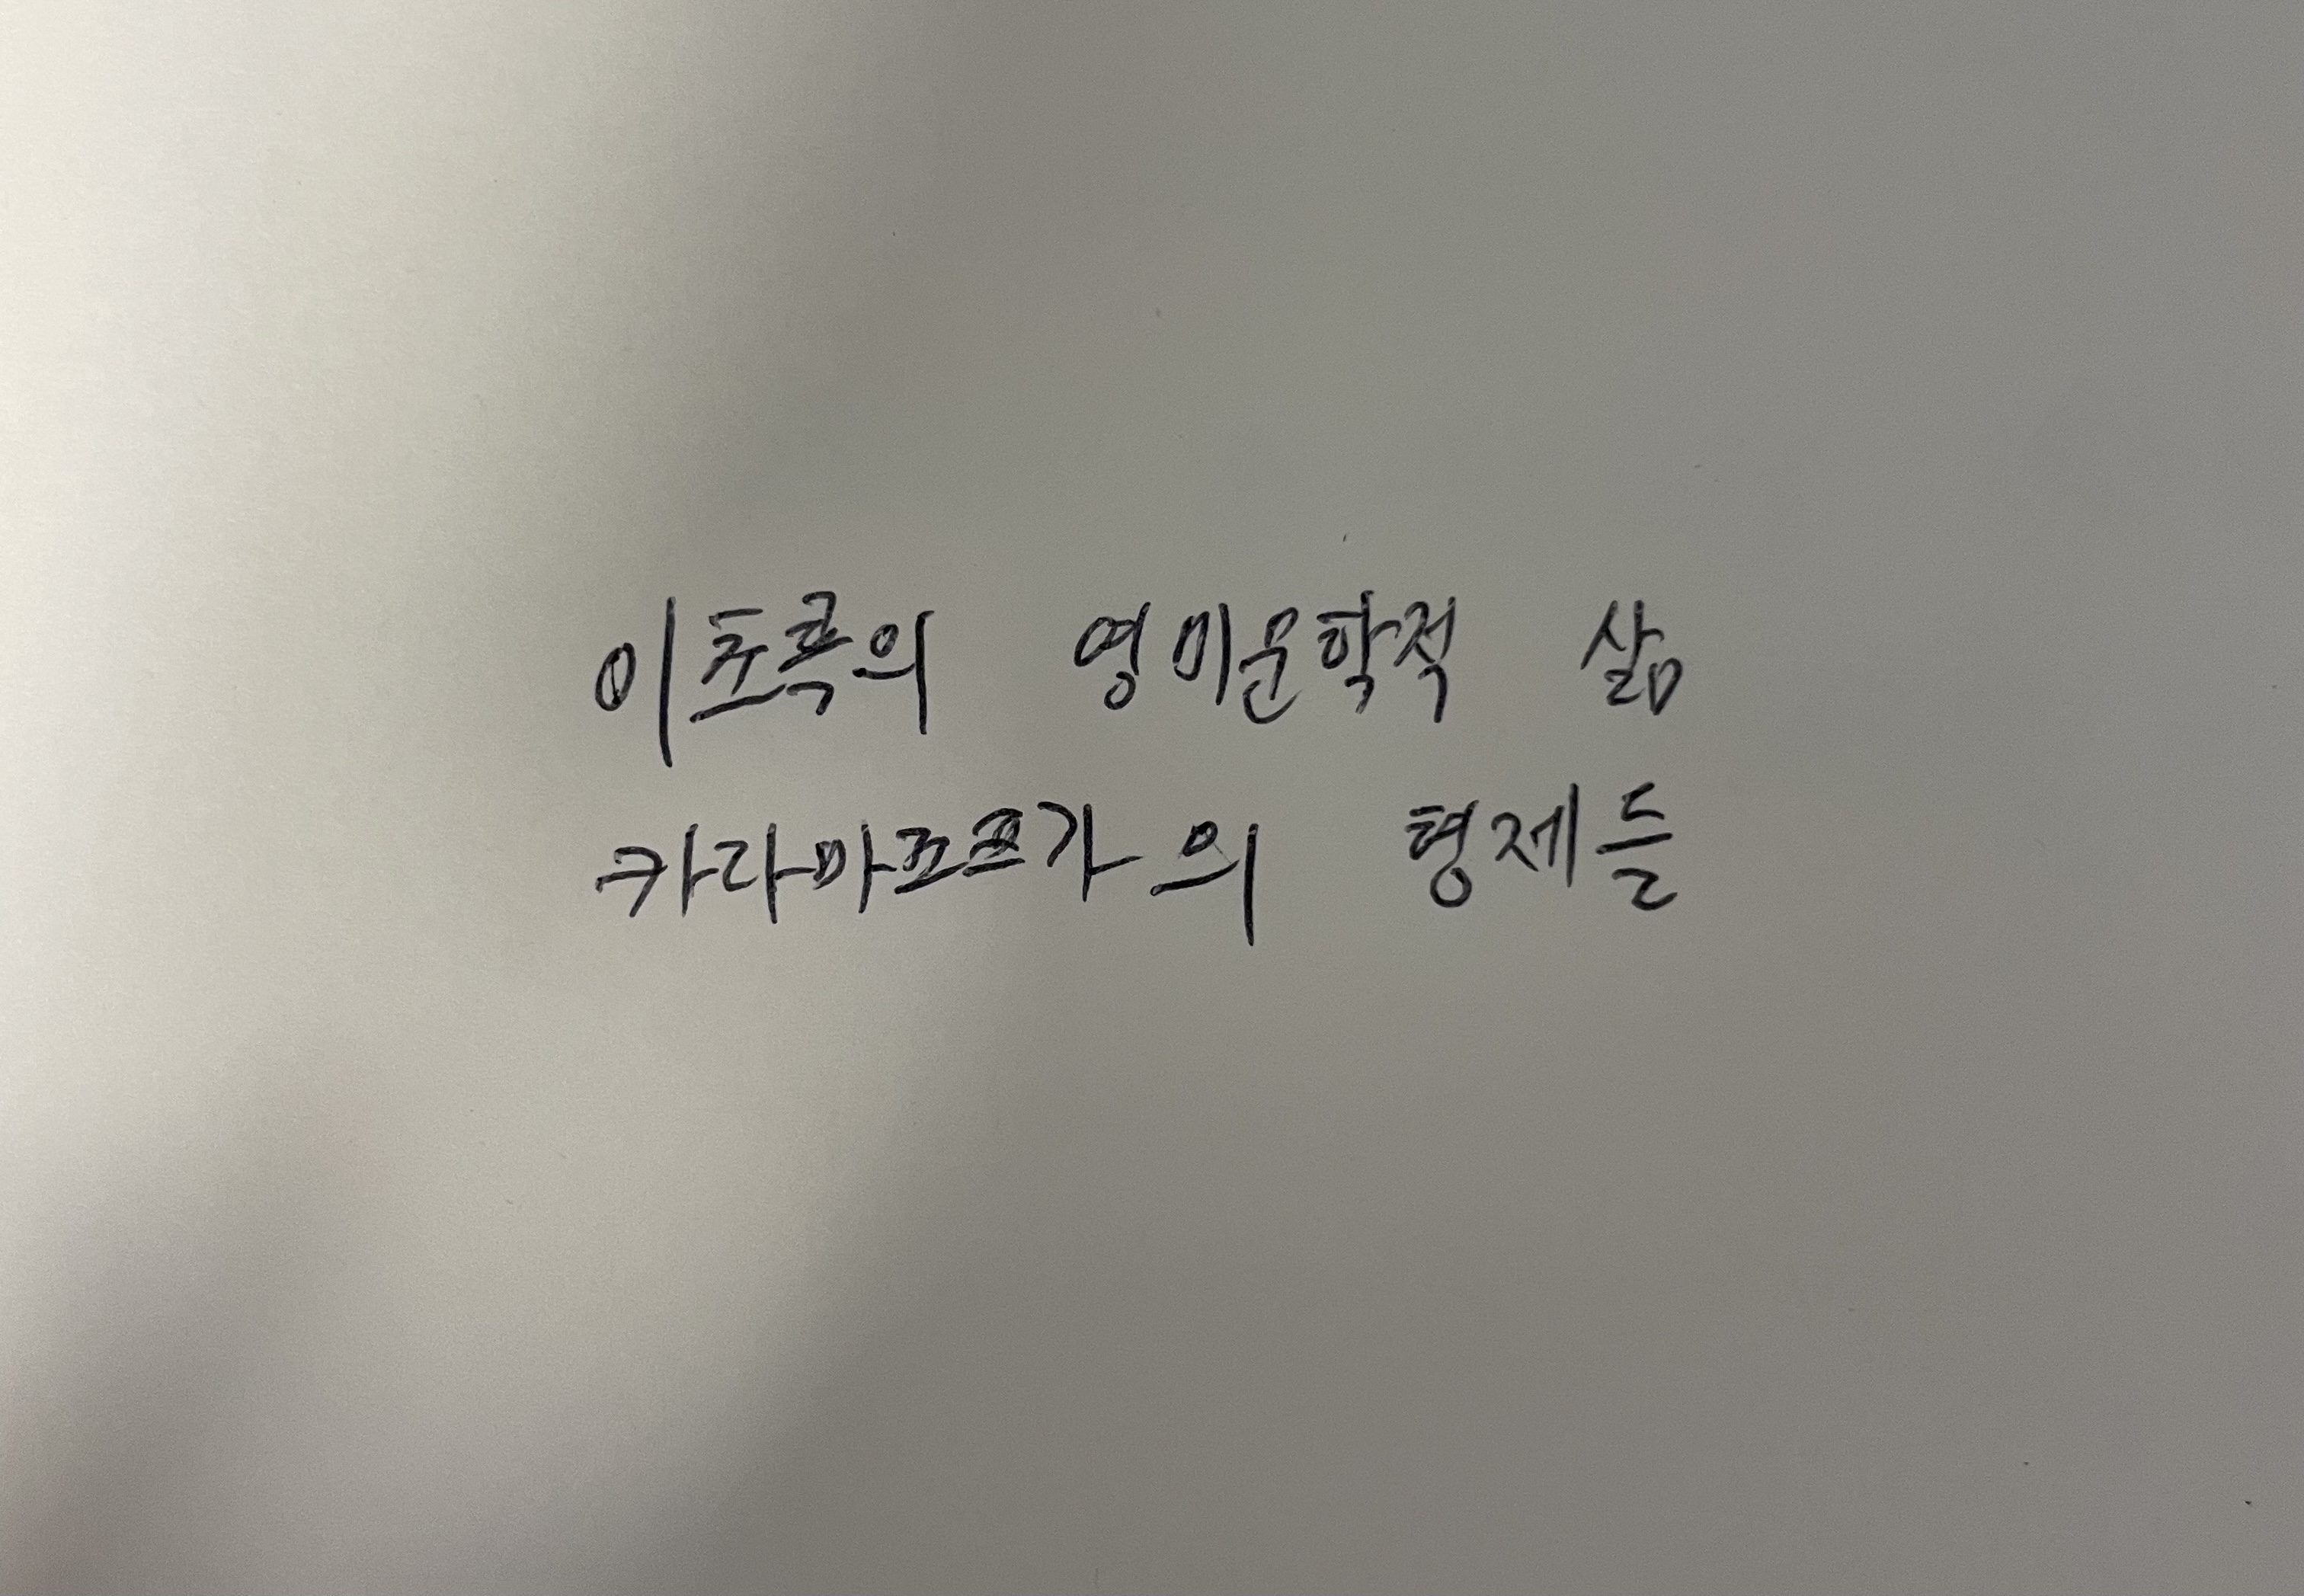 이초록의 영미문학적 삶
카라마조프가의 형제들